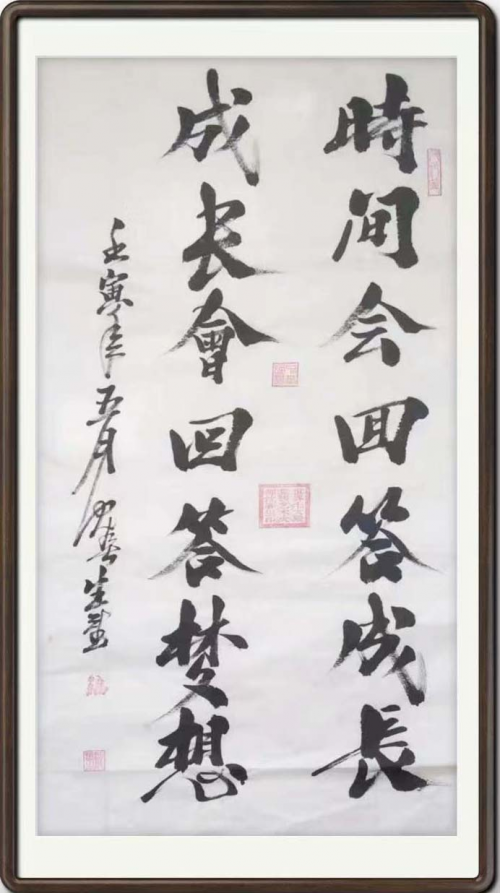 時间会回答成長
成长會回答梦想
壬寅年五月